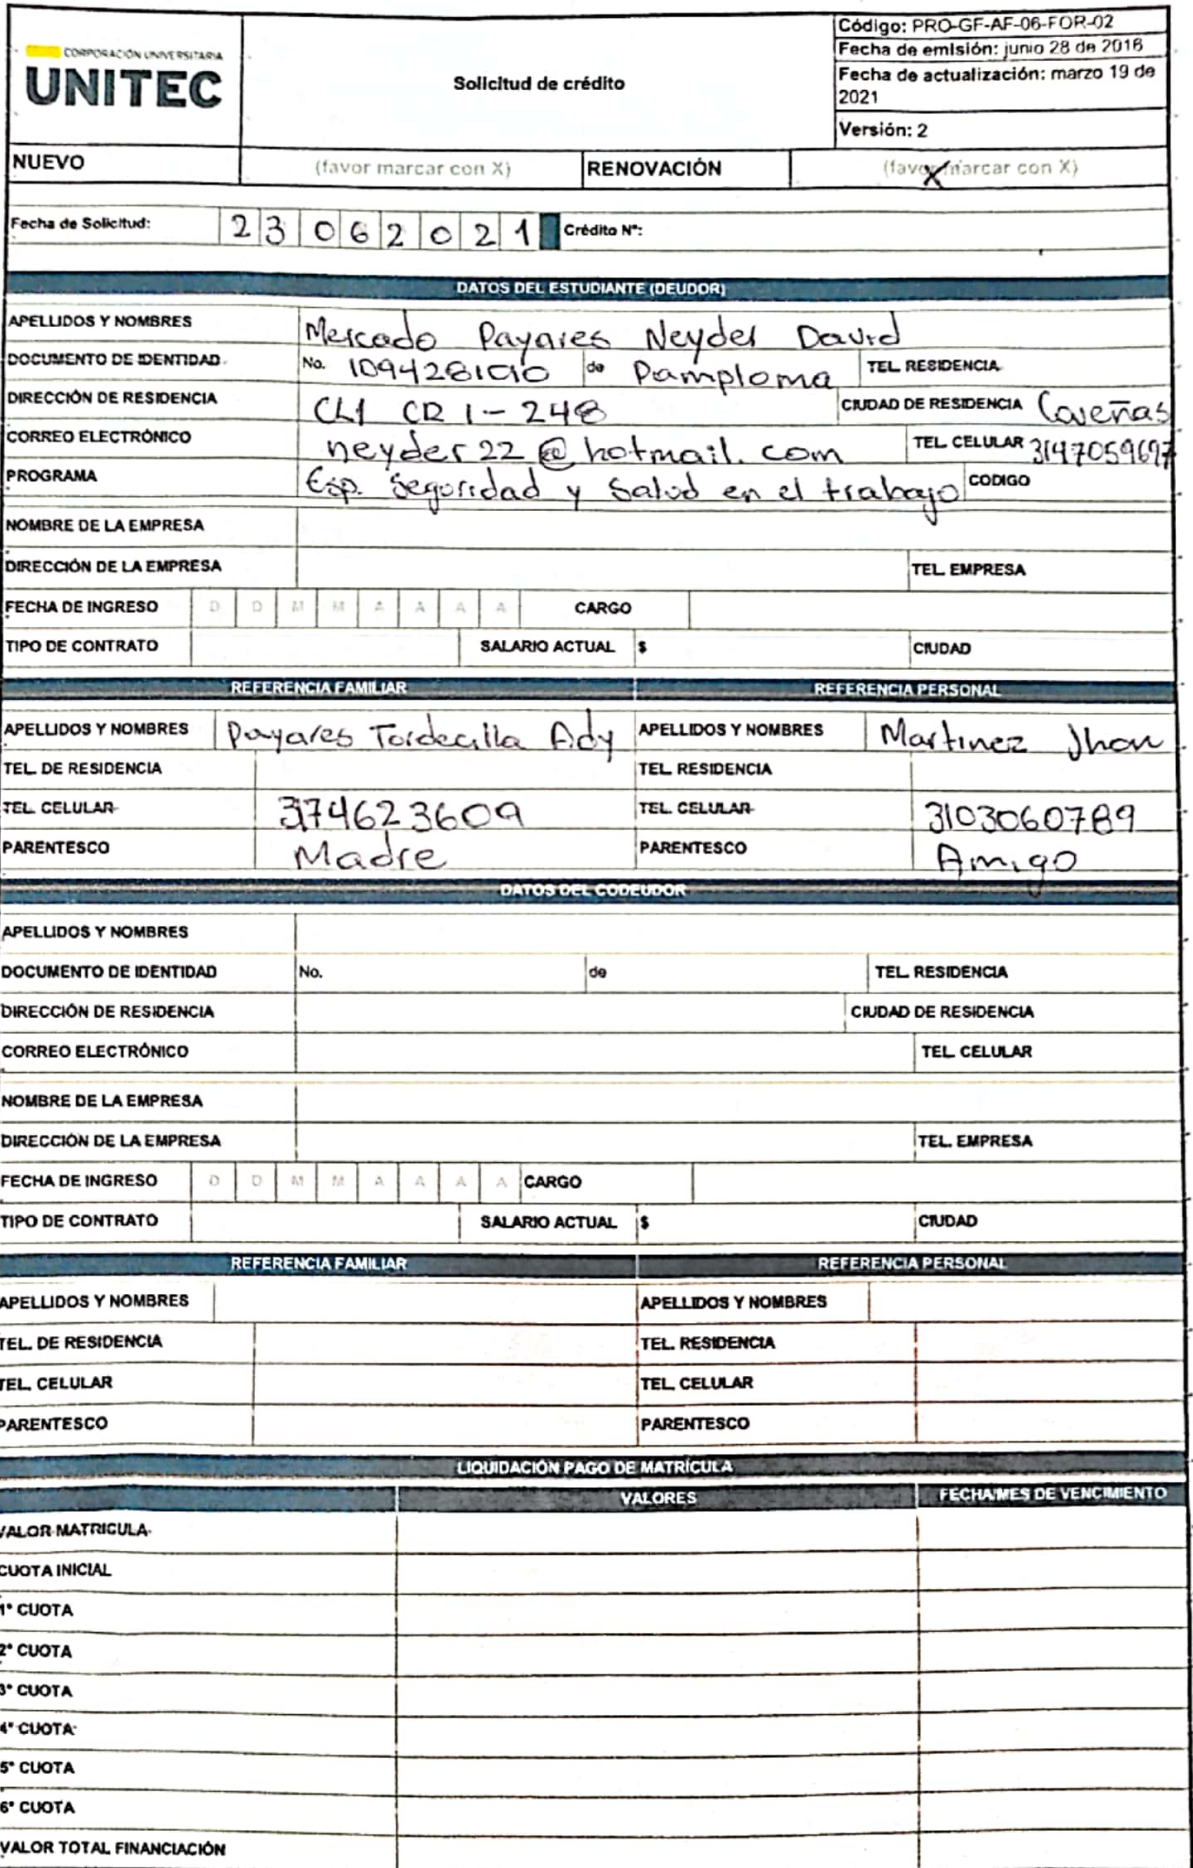 CORPORACIÓN UNIVERSITARIA
UNITEC
Solicitud de crédito
Código: PRO-GF-AF-06-FOR-02
Fecha de emisión: junio 28 de 2016
Fecha de actualización: marzo 19 de
2021
Versión: 2
NUEVO (favor marcar con X) RENOVACIÓN (favor marcar con X) X
Fecha de Solicitud: 2 3 0 6 2 0 2 1 Crédito N°:
DATOS DEL ESTUDIANTE (DEUDOR)
APELLIDOS Y NOMBRES Mercado Payares Neyder David
DOCUMENTO DE IDENTIDAD No. de Pamplona TEL. RESIDENCIA
DIRECCIÓN DE RESIDENCIA CL1 CR 1-248 CIUDAD DE RESIDENCIA Coveñas
CORREO ELECTRÓNICO neyder22@hotmail.com TEL. CELULAR 3147059697
PROGRAMA Esp. Seguridad y Salud en el trabajo CODIGO
NOMBRE DE LA EMPRESA
DIRECCIÓN DE LA EMPRESA TEL. EMPRESA
FECHA DE INGRESO D D M M A A A A CARGO
TIPO DE CONTRATO SALARIO ACTUAL $ CIUDAD
REFERENCIA FAMILIAR REFERENCIA PERSONAL
APELLIDOS Y NOMBRES Payares Tordecilla Ady APELLIDOS Y NOMBRES Martinez Jhon
TEL. DE RESIDENCIA TEL. RESIDENCIA
TEL. CELULAR 3174623609 TEL. CELULAR 3103060789
PARENTESCO Madre PARENTESCO Amigo
DATOS DEL CODEUDOR
APELLIDOS Y NOMBRES
DOCUMENTO DE IDENTIDAD No. de TEL. RESIDENCIA
DIRECCIÓN DE RESIDENCIA CIUDAD DE RESIDENCIA
CORREO ELECTRÓNICO TEL. CELULAR
NOMBRE DE LA EMPRESA
DIRECCIÓN DE LA EMPRESA TEL. EMPRESA
FECHA DE INGRESO D D M M A A A A CARGO
TIPO DE CONTRATO SALARIO ACTUAL $ CIUDAD
REFERENCIA FAMILIAR REFERENCIA PERSONAL
APELLIDOS Y NOMBRES APELLIDOS Y NOMBRES
TEL. DE RESIDENCIA TEL. RESIDENCIA
TEL. CELULAR TEL. CELULAR
PARENTESCO PARENTESCO
LIQUIDACIÓN PAGO DE MATRÍCULA
VALORES FECHA/MES DE VENCIMIENTO
VALOR MATRICULA
CUOTA INICIAL
1° CUOTA
2° CUOTA
3° CUOTA
4° CUOTA
5° CUOTA
6° CUOTA
VALOR TOTAL FINANCIACIÓN